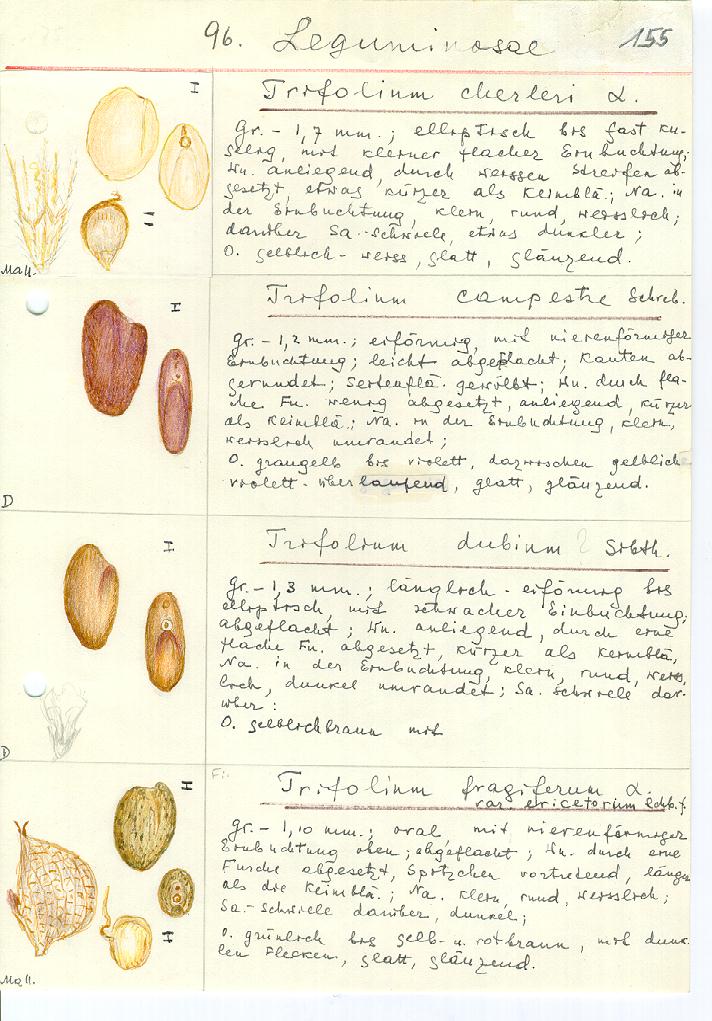 96. Leguminosae 155
Trifolium cherleri L.
Gr. - 1,7 mm.; elliptisch bis fast ku-
gelig, mit kleiner flacher Einbuchtung;
Wu. anliegend, durch weissen Streifen ab-
gesetzt, etwas kürzer als Keimblä.; Na. in
der Einbuchtung, klein, rund, weisslich;
darüber Sa.-Schwiele, etwas dunkler;
O. gelblich-weiss, glatt, glänzend.
I
II
Ma11.
Trifolium campestre Schreb.
Gr. - 1,2 mm.; eiförmig, mit nierenförmiger
Einbuchtung; leicht abgeflacht; Kanten ab-
gerundet; Seitenflä. gewölbt; Wu. durch fla-
che Fu. wenig abgesetzt, anliegend, kürzer
als Keimblä.; Na. in der Einbuchtung, klein,
weisslich umrandet;
O. graugelb bis violett, dazwischen gelblich
violett-überlaufend, glatt, glänzend.
I
D
Trifolium dubium ? Sibth.
Gr. - 1,3 mm.; länglich-eiförmig bis
elliptisch, mit schwacher Einbuchtung;
abgeflacht; Wu. anliegend, durch eine
flache Fu. abgesetzt, kürzer als Keimblä,
Na. in der Einbuchtung, klein, rund, weiss,
lich, dunkel umrandet; Sa. Schwiele dar-
über:
O. gelblichbraun mit
I
D
Fi.
Trifolium fragiferum L.
var. ericetorum Rchb. f.
Gr. - 1,10 mm.; oval mit nierenförmiger
Einbuchtung oben; abgeflacht; Wu. durch eine
Furche abgesetzt, Spitzchen vortretend, länger
als die Keimblä.; Na. klein, rund, weisslich;
Sa.-Schwiele darüber, dunkel;
O. grünlich bis gelb- u. rotbraun, mit dunk-
len Flecken, glatt, glänzend.
Ma11.